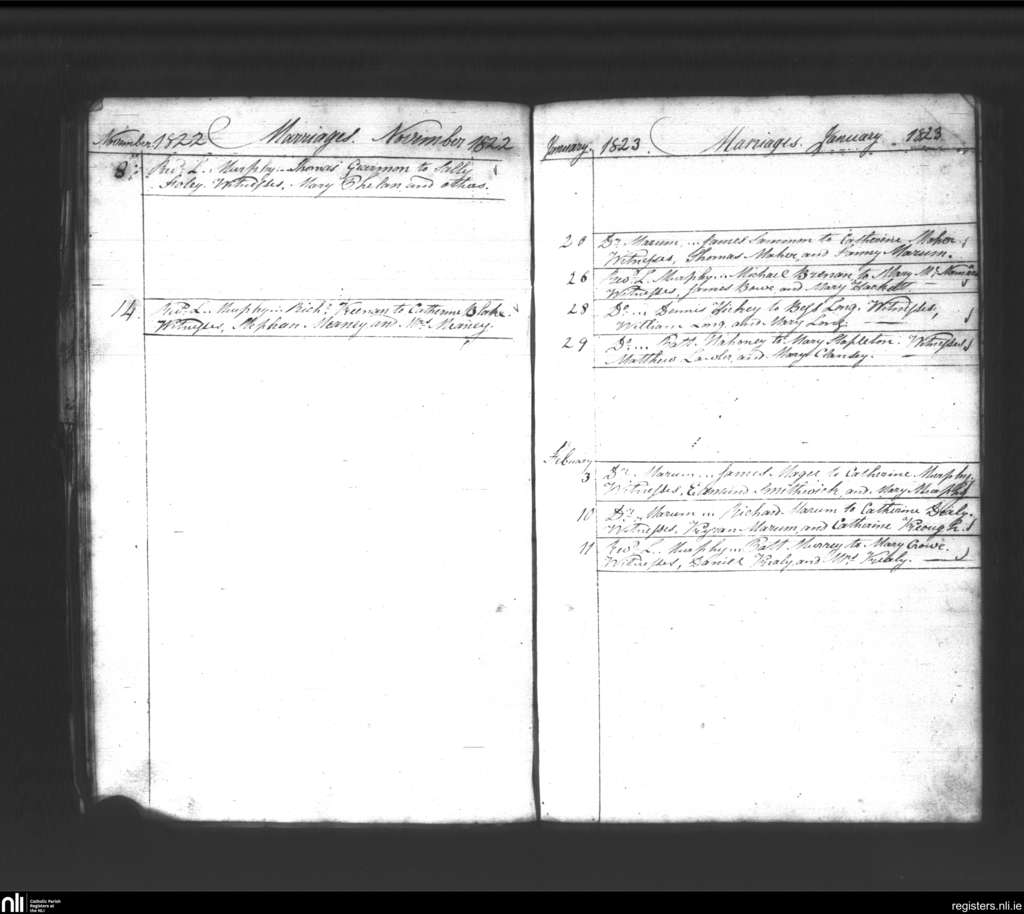 November 1822 Marriages. November 1822
8th Revd L. Murphy.. Thomas Garmon to Sally
Foley. Witnesses, Mary Phelan and others.
14. Revd L.. Murphy... Richd Keenan to Catherine Blake.
Witnesses, Stephen Neaney and Mrs Neaney.
January. 1823. Marriages. January 1823
20 Dr Marum ... James Lammon to Catherine Maher
Witnesses, Thomas Maher and Fanny Marum.
26 Revd L. Murphy... Michael Brenan to Mary
Witnesses James Bowe and Mary Hackett
28 Do ... Dennis Hickey to Bess Long. Witnesses,
William Long and Mary Long.
29 Do ... Patt. Mahoney to Mary Stapleton. Witnesses
Matthew Lawlor and Mary Clansey.
February
3 Dr Marum ... James Magee to Catherine Murphy.
Witnesses, Edmund Smithwick and Mary Murphy
10 Dr Marum ... Richard Marum to Catherine Dealy.
Witnesses, Kyran Marum and Catherine Keough.
11 Revd L. Murphy... Patt. Murrey to Mary Crowe.
Witnesses, Daniel Kealy and Mrs Kealy.
nli Catholic Parish
Registers at
the NLI
registers.nli.ie